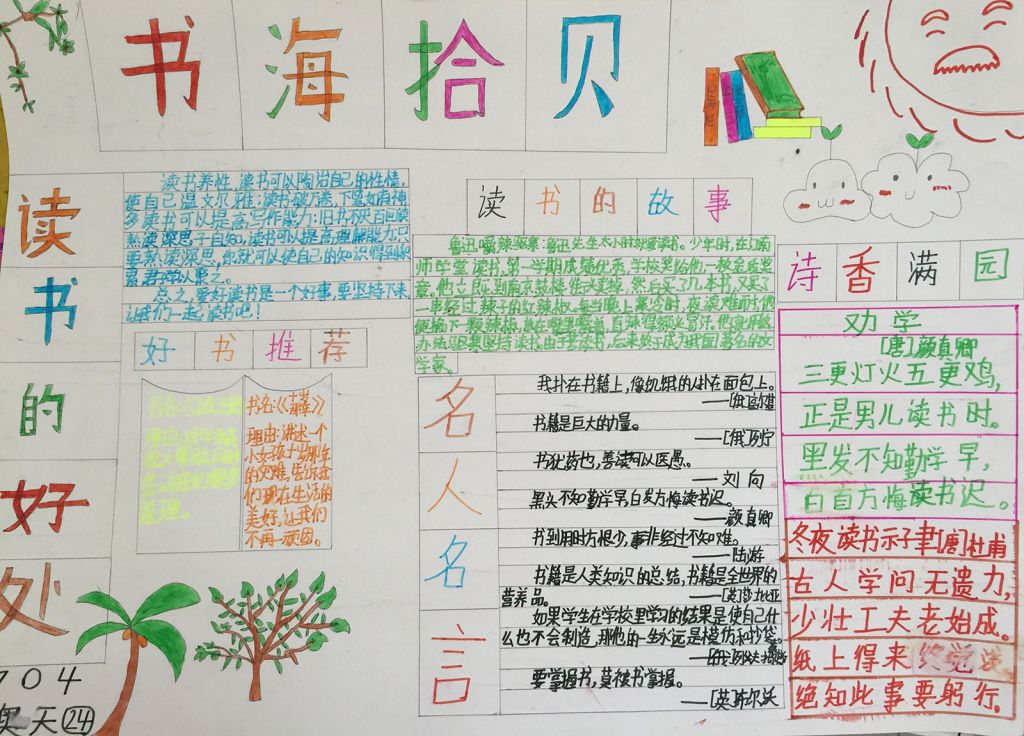 书海拾贝
读书的好处
读书养性,读书可以陶冶自己的性情,
使自己温文尔雅;读书破万卷,下笔如有神,
多读书可以提高写作能力;旧书不厌百回读,
熟读深思子自知,读书可以提高理解能力,只
要熟读深思,你就可以使自己的知识得到积
累,君子学以聚之。
总之,爱好读书是一个好事,要坚持下来,
让我们一起读书吧!
好书推荐
书名:
理由:
书名:《草莓》
理由:讲述一个
小女孩十岁那年
的艰难,告诉我
们现在生活的
美好,让我们
不再一顽固。
读书的故事
鲁迅嚼辣驱寒:鲁迅先生从小时就爱读书。少年时,在江南
师学堂读书,第一学期成绩优秀,学校奖给他一枚金质奖
章,他立即拿到南京鼓楼街头卖掉,然后买了几本书,又买了
一串红辣椒。每当晚上寒冷时,夜读难耐,他
便摘下一颗辣椒,放在嘴里嚼着,直辣得额头冒汗。他就用这种
办法驱寒坚持读书。由于苦读书,后来终于成为我国著名的文
学家。
名人名言
我扑在书籍上,像饥饿的人扑在面包上。
——[俄]高尔基
书籍是巨大的力量。
——[俄]列宁
书犹药也,善读可以医愚。
——刘向
黑头不知勤学早,白发方悔读书迟。
——颜真卿
书到用时方恨少,事非经过不知难。
——陆游
书籍是人类知识的总结,书籍是全世界的
营养品。——[英]莎士比亚
如果学生在学校里学习的结果是使自己什
么也不会制造,那他的一生永远是模仿和抄袭。
——[俄]列夫·托尔斯泰
要掌握书,莫被书掌握。
——[英]布尔沃
诗香满园
劝学
[唐]颜真卿
三更灯火五更鸡,
正是男儿读书时。
黑发不知勤学早,
白首方悔读书迟。
冬夜读书示子聿[唐]杜甫
古人学问无遗力,
少壮工夫老始成。
纸上得来
绝知此事要躬行。
704
天24